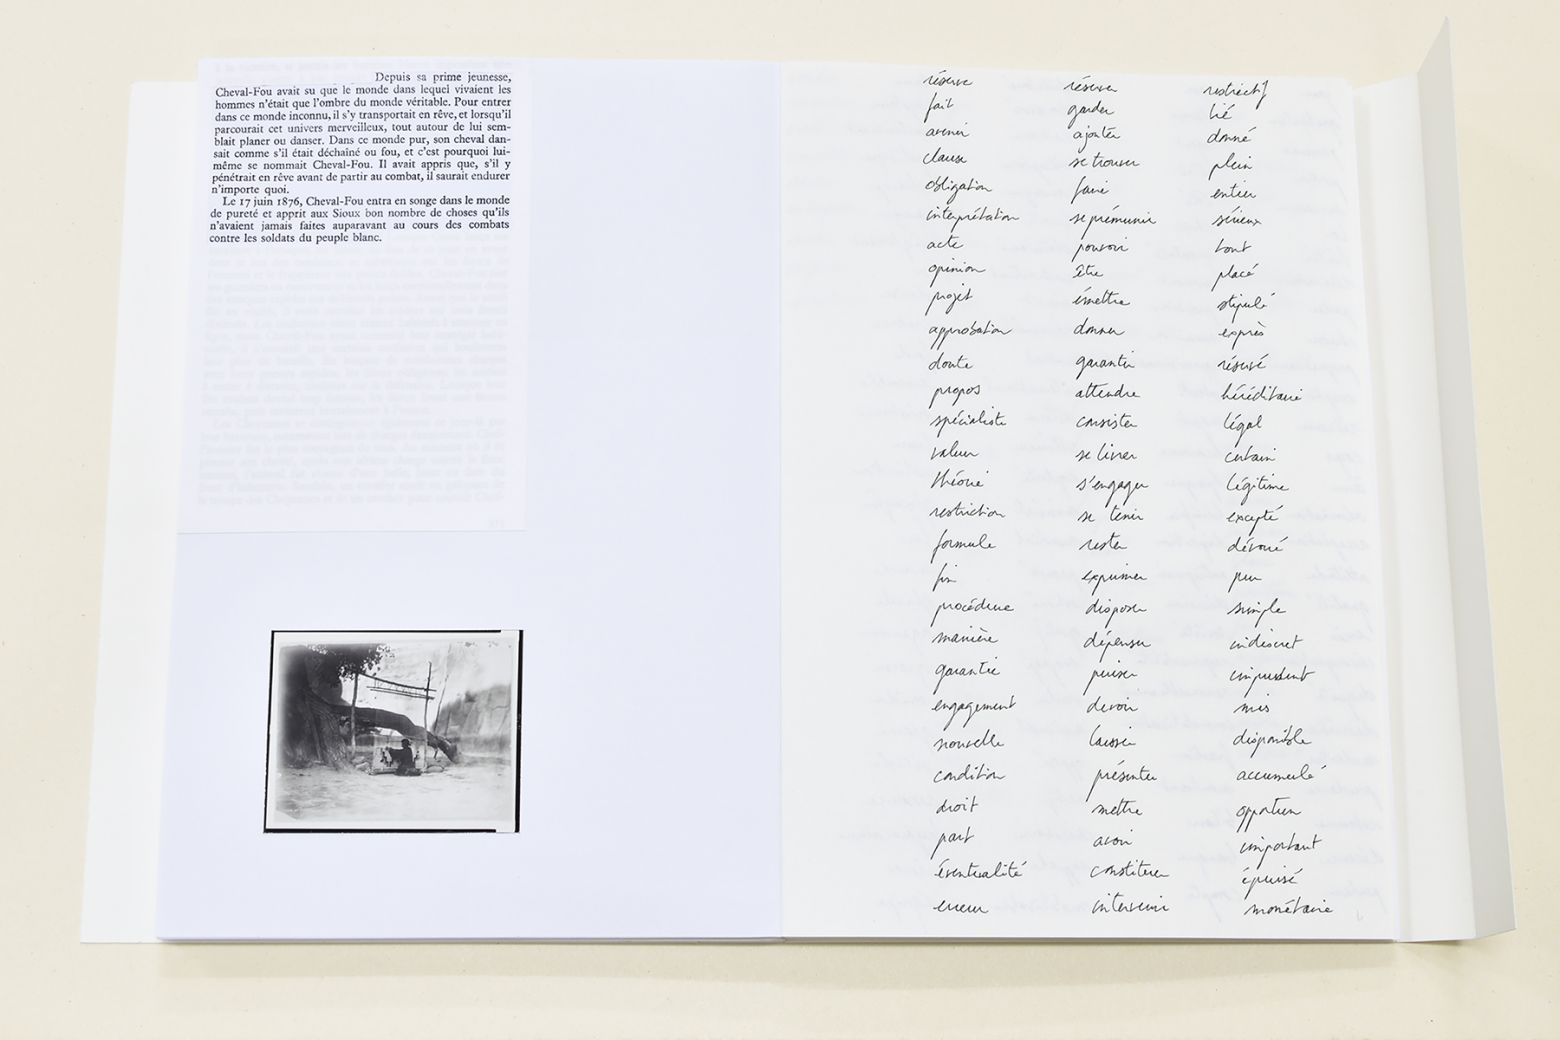 Depuis sa prime jeunesse,
Cheval-Fou avait su que le monde dans lequel vivaient les
hommes n'était que l'ombre du monde véritable. Pour entrer
dans ce monde inconnu, il s'y transportait en rêve, et lorsqu'il
parcourait cet univers merveilleux, tout autour de lui sem-
blait planer ou danser. Dans ce monde pur, son cheval dan-
sait comme s'il était déchaîné ou fou, et c'est pourquoi lui-
même se nommait Cheval-Fou. Il avait appris que, s'il y
pénétrait en rêve avant de partir au combat, il saurait endurer
n'importe quoi.
Le 17 juin 1876, Cheval-Fou entra en songe dans le monde
de pureté et apprit aux Sioux bon nombre de choses qu'ils
n'avaient jamais faites auparavant au cours des combats
contre les soldats du peuple blanc.
réserve réserver restrictif
fait garder lié
avenir ajouter donné
clause se trouver plein
obligation faire entier
interprétation se prémunir sérieux
acte pouvoir tout
opinion être placé
projet émettre stipulé
approbation donner exprès
doute garantir réservé
propos attendre héréditaire
spécialiste consister légal
valeur se livrer certain
théorie s'engager légitime
restriction se tenir excepté
formule rester dévoué
fin exprimer pur
procédure disposer simple
manière dépenser indiscret
garantie puiser imprudent
engagement devoir mis
nouvelle laisser disponible
condition présenter accumulé
droit mettre opportun
part avoir important
éventualité constituer épuisé
erreur intervenir monétaire